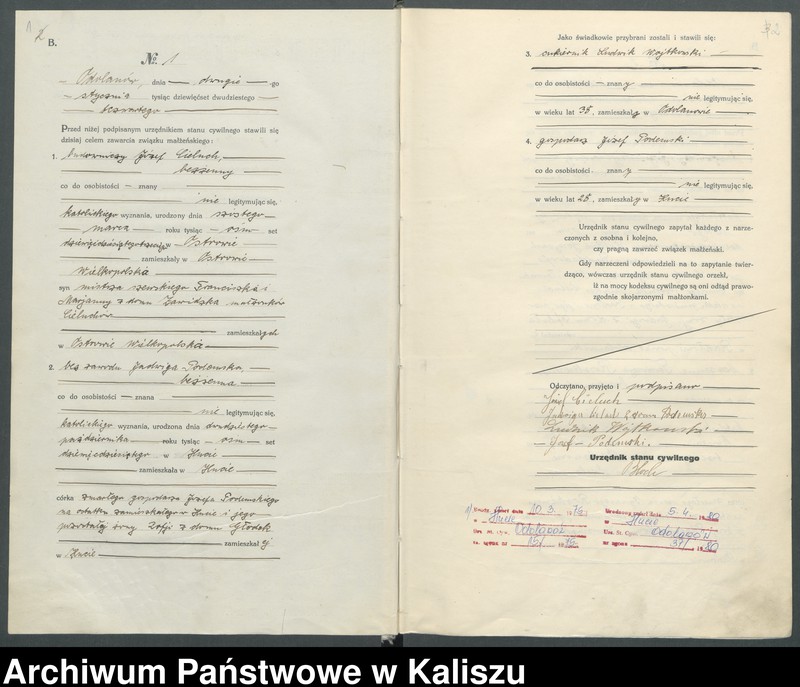 2
B.
№. 1
Odolanów, dnia drugie go
stycznia tysiąc dziewięćset dwudziestego
czwartego
Przed niżej podpisanym urzędnikiem stanu cywilnego stawili się
dzisiaj celem zawarcia związku małżeńskiego:
1. budowniczy Józef Cieluch,
bezżenny
co do osobistości — znany
nie legitymując się,
katolickiego wyznania, urodzony dnia szóstego
marca roku tysiąc — osm — set
w Ostrowie
zamieszkały w Ostrowie
Wielkopolska
syn mistrza szewskiego Franciszka i
Marjanny z domu Zawidzka małżonków
Cieluchów
zamieszkałych
w Ostrowie Wielkopolska
2. bez zawodu Jadwiga Podemska,
bezżenna
co do osobistości — znana
nie legitymując się,
katolickiego wyznania, urodzona dnia dwudziestego
października roku tysiąc — osm — set
dziewięćdziesiątego w Hucie
zamieszkała w Hucie
córka zmarłego gospodarza Józefa Podemskiego
na ostatku zamieszkałego w Hucie i jego
pozostałej żony Zofji z domu Głodek
zamieszkałej
w Hucie
2
Jako świadkowie przybrani zostali i stawili się:
3. cukiernik Ludwik Wojtkowski
co do osobistości — znany
nie legitymując się,
w wieku lat 35, zamieszkały w Odolanowie
4. gospodarz Józef Podemski
co do osobistości — znany
nie legitymując się,
w wieku lat 25, zamieszkały w Hucie
Urzędnik stanu cywilnego zapytał każdego z narze-
czonych z osobna i kolejno,
czy pragną zawrzeć związek małżeński.
Gdy narzeczeni odpowiedzieli na to zapytanie twier-
dząco, wówczas urzędnik stanu cywilnego orzekł,
iż na mocy kodeksu cywilnego są oni odtąd prawo-
zgodnie skojarzonymi małżonkami.
Odczytano, przyjęto i podpisano
Józef Cieluch
Jadwiga Cieluch z domu Podemska
Ludwik Wojtkowski
Józef Podemski.
Urzędnik stanu cywilnego
1) dnia 10.3. 1976
w Hucie
Odolanów
5.4. 1980
w Hucie
Urz. St. Cyw. Odolanów
37/1980
Archiwum Państwowe w Kaliszu